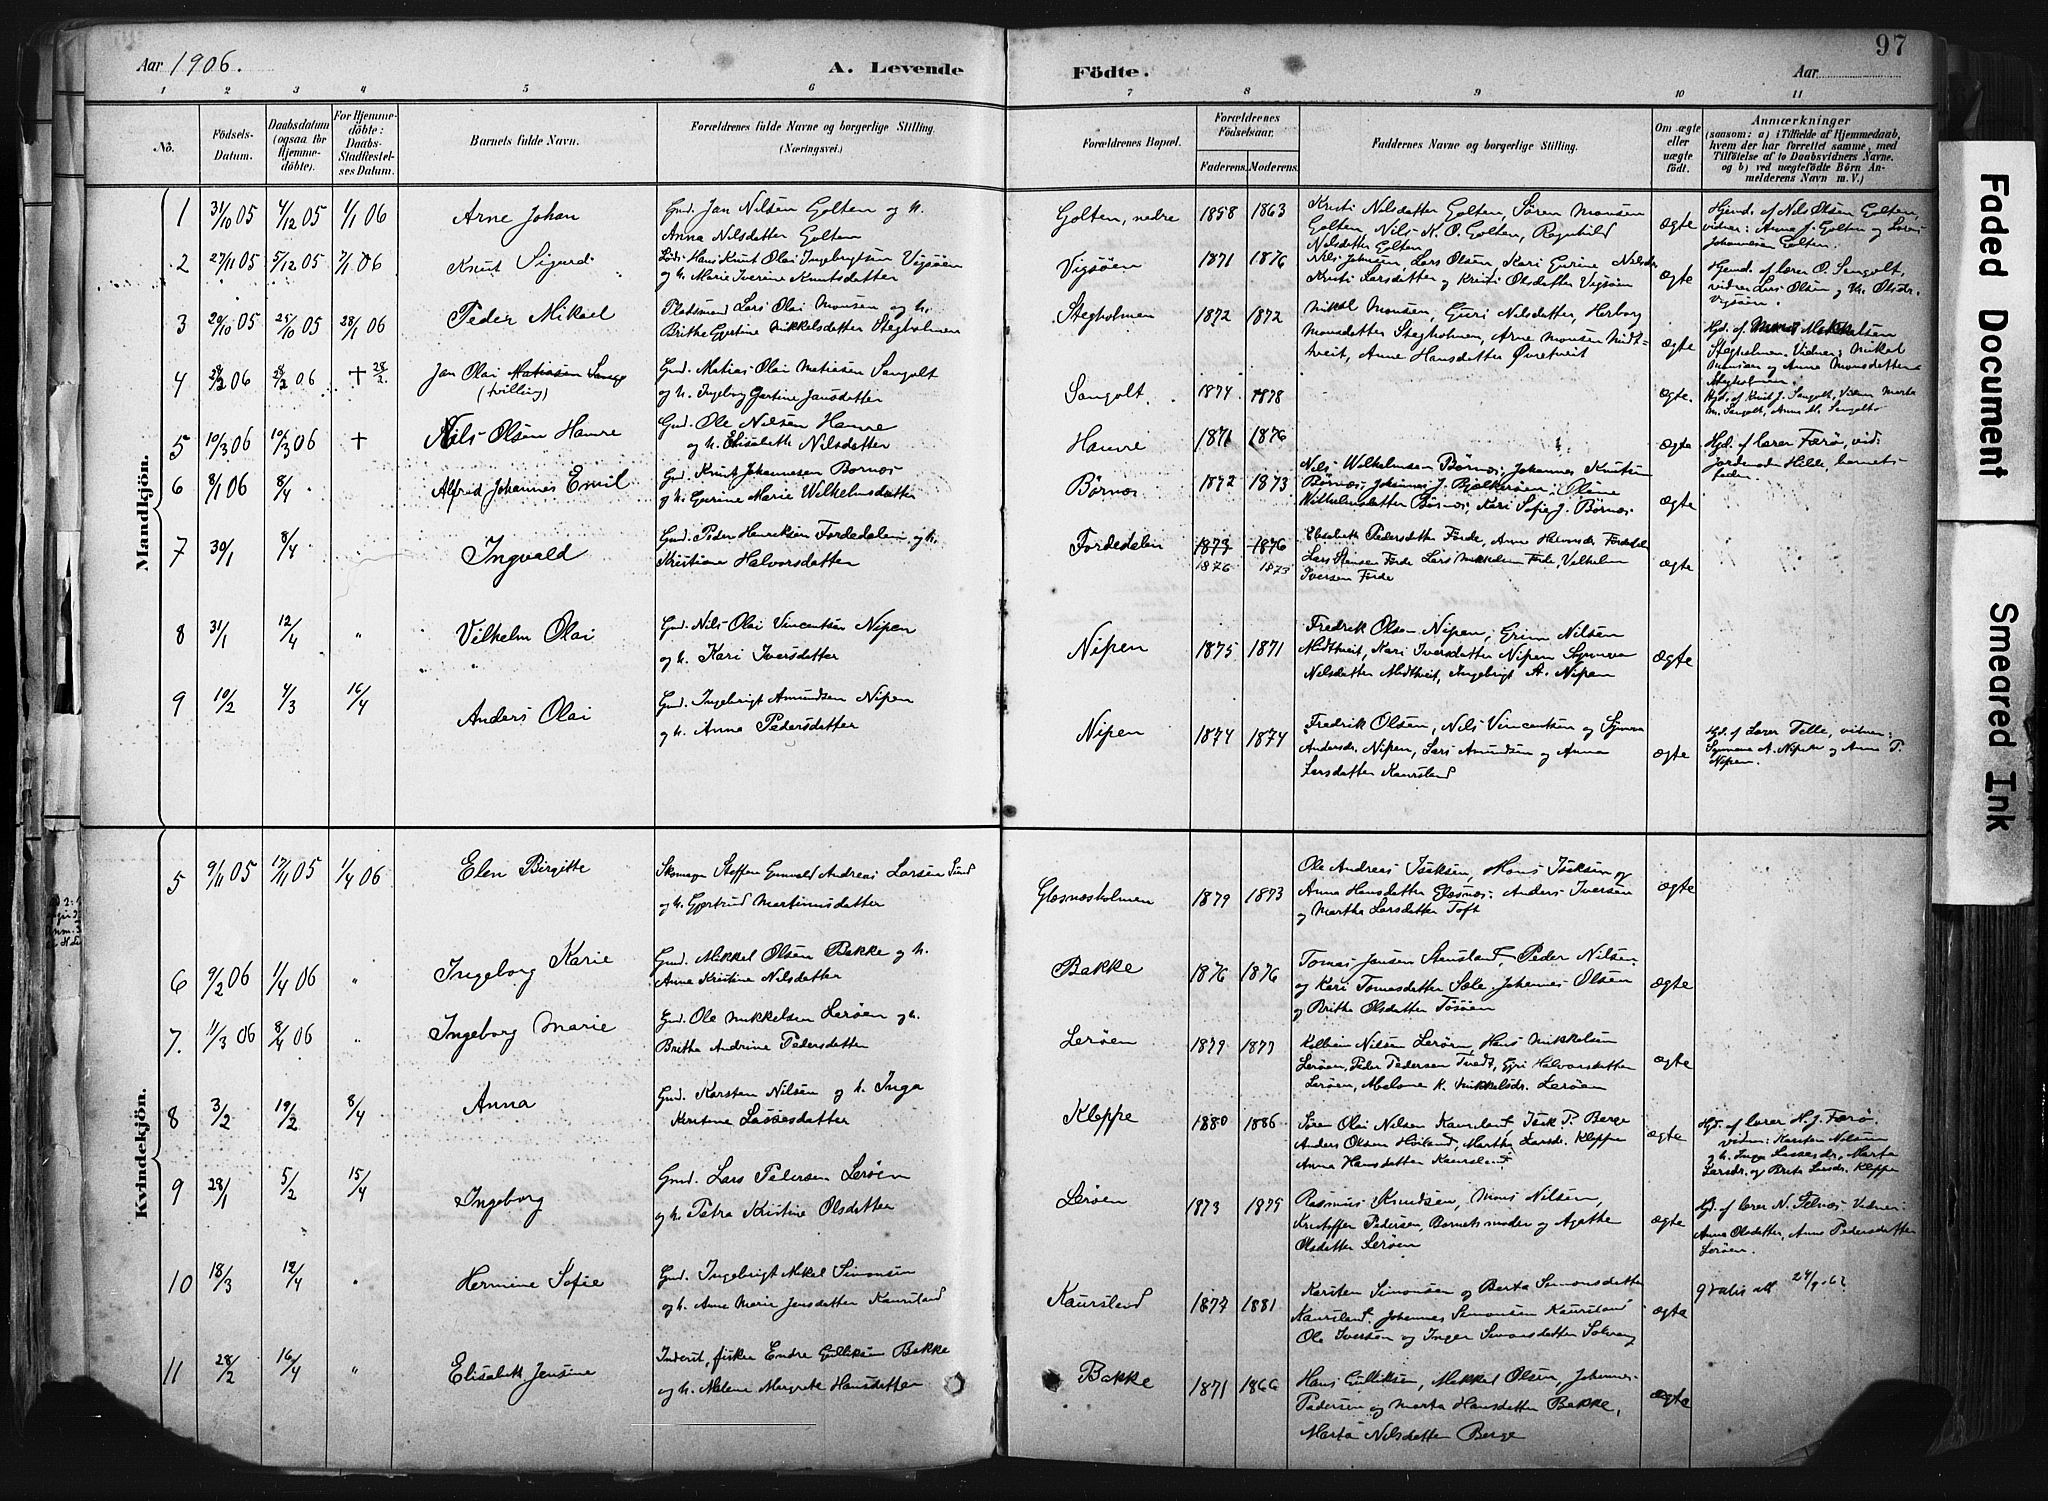 Aar 1906.
A. Levende Födte.
Aar
97
1 2 3 4 5 6 7 8 9 10 11
Nô.
Födsels-Datum.
Daabsdatum (ogsaa for Hjemmedöbte).
For Hjemmedöbte: Daabs-Stadfestelses Datum.
Barnets fulde Navn.
Forældrenes fulde Navne og borgerlige Stilling. (Næringsvei.)
Forældrenes Bopæl.
Forældrenes Födselsaar.
Faderens. Moderens.
Faddernes Navne og borgerlige Stilling.
Om ægte eller uægte födt.
Anmærkninger
(saasom: a) i Tilfælde af Hjemmedaab, hvem der har forrettet samme, med Tilföielse af to Daabsvidners Navne, og b) ved uægtefödte Börn Anmelderens Navn m. V.)
Mandkjön.
1 31/10 05 4/12 05 1/1 06 Arne Johan
Gmd. Jan Nilsen Golten og h.
Anna Nilsdatter Golten
Golten, nedre 1858 1863
Kristi Nilsdatter Golten, Sören Monsen
Golten, Nils K. O. Golten, Ragnhild
Nilsdatter Golten
ægte
Hjemd. af Nils Olsen Golten,
vidner: Anna J. Golten og Lars
Johannesen Golten.
2 27/11 05 5/12 05 7/1 06 Knut Sigurd
Hans Knut Olai Ingebrigtsen Vigsöen
og h. Marie Iverine Knutsdatter
Vigsöen 1871 1876
Nils Johnsen, Lars Olsen, Kari Gurine Nilsdtr
Kristi Larsdatter og Kristi Olsdatter Vigsöen
ægte
Hjemd. af lærer O. Sangolt,
vidner Lars Olsen og Olsdr.
Vigsöen.
3 20/10 05 25/10 05 28/1 06 Peder Mikael
Pladsmand Lars Olai Monsen og h.
Brithe Gjertine Mikkelsdatter Stegholmen
Stegholmen 1872 1872
Mikal Monsen, Guri Nilsdatter, Herborg
Monsdatter Stegholmen, Arne Monsen Midt-
tveit, Anne Hansdatter Övretveit
ægte
Hjd. af Mikkelsen
Stegholmen. Vidner: Mikal
Monsen og Anna Monsdatter
Stegholmen.
4 24/2 06 24/2 06 † 28/2 Jan Olai Matiasen
(tvilling)
Gmd. Matias Olai Matiesen Sangolt
og h. Ingeborg Gartine Jansdatter
Sangolt 1874 1878
ægte.
Hjd. af Knut J. Sangolt, Vidner Marta
M. Sangolt, Anna M. Sangolt
5 10/3 06 10/3 06 † Nils Olsen Hamre
Gmd. Ole Nilsen Hamre
og h. Elisabeth Nilsdatter
Hamre 1871 1876
ægte
Hjd. af lærer Færö, vid:
jordmoder Hilde, barnets
fader.
6 8/1 06 8/4 Alfred Johannes Emil
Gmd. Knut Johannesen Börnes
og h. Gurine Marie Wilhelmsdatter
Börnes 1872 1873
Nils Wilhelmsen Börnes, Johannes Knutsen
Börnes, Johannes J. Bjelkeröen, Oline
Wilhelmsdatter Börnes, Kari Sofie J. Börnes
ægte
7 30/1 8/4 Ingvald
Gmd. Peder Henriksen Fordedalen og h.
Kristiane Halvorsdatter
Fordedalen 1873 1876
1876 1873
Elisabeth Pedersdatter Förde, Anne Fördedalen
Lars Stensen Förde Lars Mikkelsen Förde, Vilhelm
Iversen Förde
ægte
8 31/1 12/4 " Vilhelm Olai
Gmd. Nils Olai Vincentsen Nipen
og h. Kari Iversdatter
Nipen 1875 1871
Fredrik Olsen Nipen, Grim Nilsen
Midttveit, Kari Iversdatter Nipen Synneva
Nilsdatter Midttveit, Ingebrigt A. Nipen
ægte
9 10/2 4/3 16/4 Anders Olai
Gmd. Ingebrigt Amundsen Nipen
og h. Anna Pedersdatter
Nipen 1874 1874
Fredrik Olsen, Nils Vincentsen og Synneva
Andersdr. Nipen, Lars Amundsen og Anna
Larsdatter Kaursland
ægte
Hjd. af Lærer Telle, vidner:
Synneva A. Nipen og Anna P.
Nipen.
Kvindekjön.
5 9/11 05 17/11 05 1/4 06 Elen Birgitte
Skomager Steffen Gunvald Andreas Larsen Sund
og h. Gjertrud Martinusdatter
Glesnesholmen 1879 1873
Ole Andreas Isaksen, Hans Isaksen og
Anna Hansdatter Glesnes, Anders Iversen
og Martha Larsdatter Toft
ægte
6 9/2 06 1/4 06 " Ingeborg Karie
Gmd. Mikkel Olsen Bakke og h.
Anna Kristine Nilsdatter
Bakke 1876 1876
Tomas Jansen Stensland, Peder Nilsen
og Kari Tomasdatter Sæle, Johannes Olsen
og Brithe Olsdatter Tösöen
ægte
7. 11/3 06 8/4 06 " Ingeborg Marie
Gmd. Ole Mikkelsen Leröen og h.
Britha Andrine Pedersdatter
Leröen 1879 1877
Kolbein Nilsen Leröen, Hans Mikkelsen
Leröen, Peder Pedersen Tvedt, Gjri Halvorsdatter
Leröen, Abelone K. Mikkelsdr. Leröen
ægte
8 3/2 19/2 8/4 Anna
Gmd. Karsten Nilsen og h. Inga
Kristine Lassesdatter
Kleppe 1880 1886
Sören Olai Nilsen Kausland, Isak P. Berge
Anders Olsen Höiland, Martha Larsd. Kleppe
Anna Hansdatter Kausland
ægte
Hjd. af lærer H. J. Færö.
vidner: Karsten Nilsen
og h. Inga Lassesdr, Marta
Larsdr. og Brita Larsdr. Kleppe
9 28/1 5/2 15/4 Ingeborg
Gmd. Lars Pedersen Leröen
og h. Petra Kristine Olsdatter
Leröen 1873 1875
Rasmus Knudsen, Mons Nilsen,
Kristoffer Pedersen, Barnets moder og Agathe
Olsdatter Leröen
ægte
Hjd. af lærer N. Telnes. Vidner:
Anna Olsdatter, Anna Pedersdatter
Leröen.
10 18/3 12/4 " Hermine Sofie
Gmd. Ingebrigt Mikal Simonsen
og h. Anne Marie Jensdatter Kaursland
Kaursland 1877 1881
Karsten Simonsen og Berta Simonsdatter
Kaursland, Johannes Simonsen Kaursland
Ole Iversen og Inger Simonsdatter Solvang
ægte
gratis att 24/9-62
11 28/2 16/4 " Elisabeth Jensine
Inderst, fisker Endre Gulliksen Bakke
og h. Malene Margrete Hansdatter
Bakke 1871 1866
Hans Gulliksen, Mikkel Olsen, Johannes
Pedersen og Marta Hansdatter Bakke,
Marta Nilsdatter Berge
ægte
Faded Document
Smeared Ink